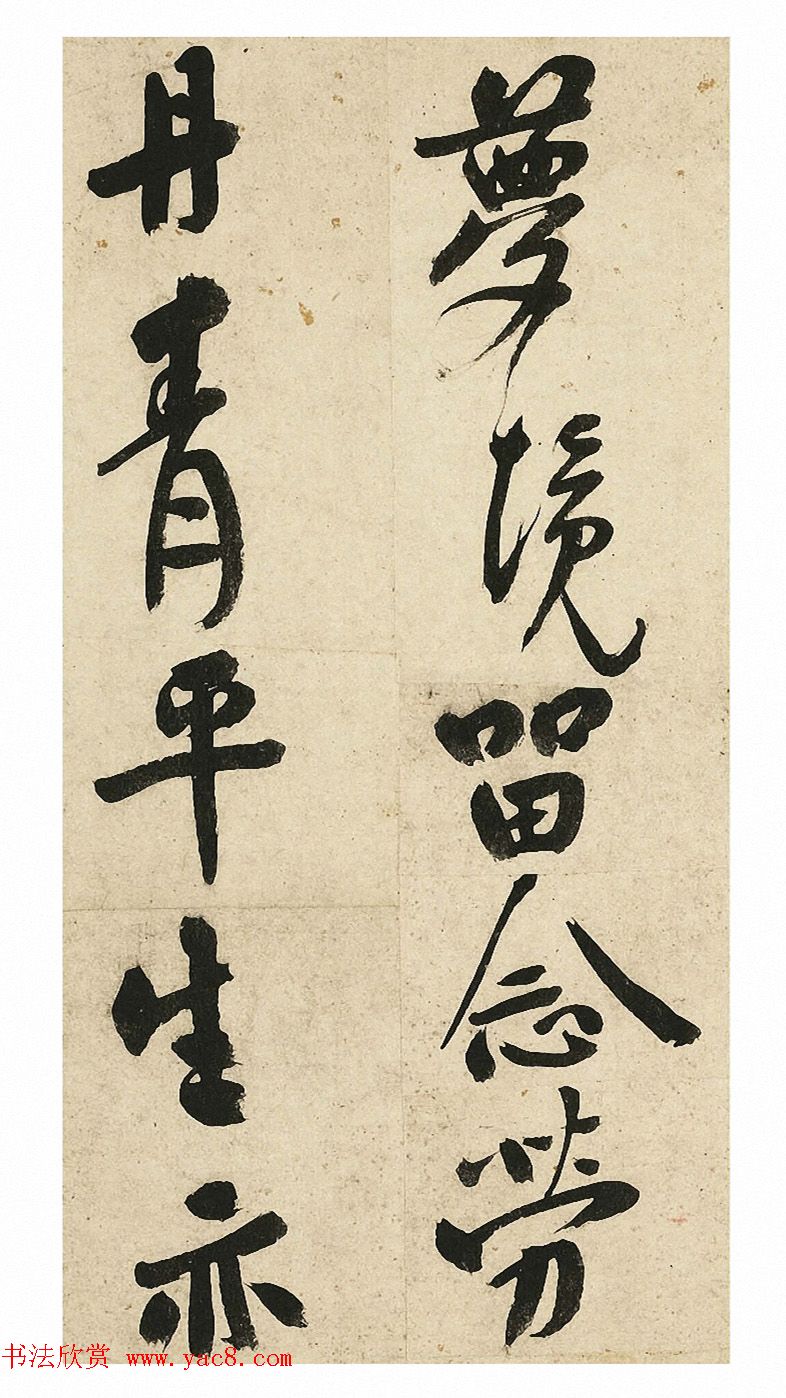 夢境留念勞
丹青平生亦
书法欣赏 www.yac8.com